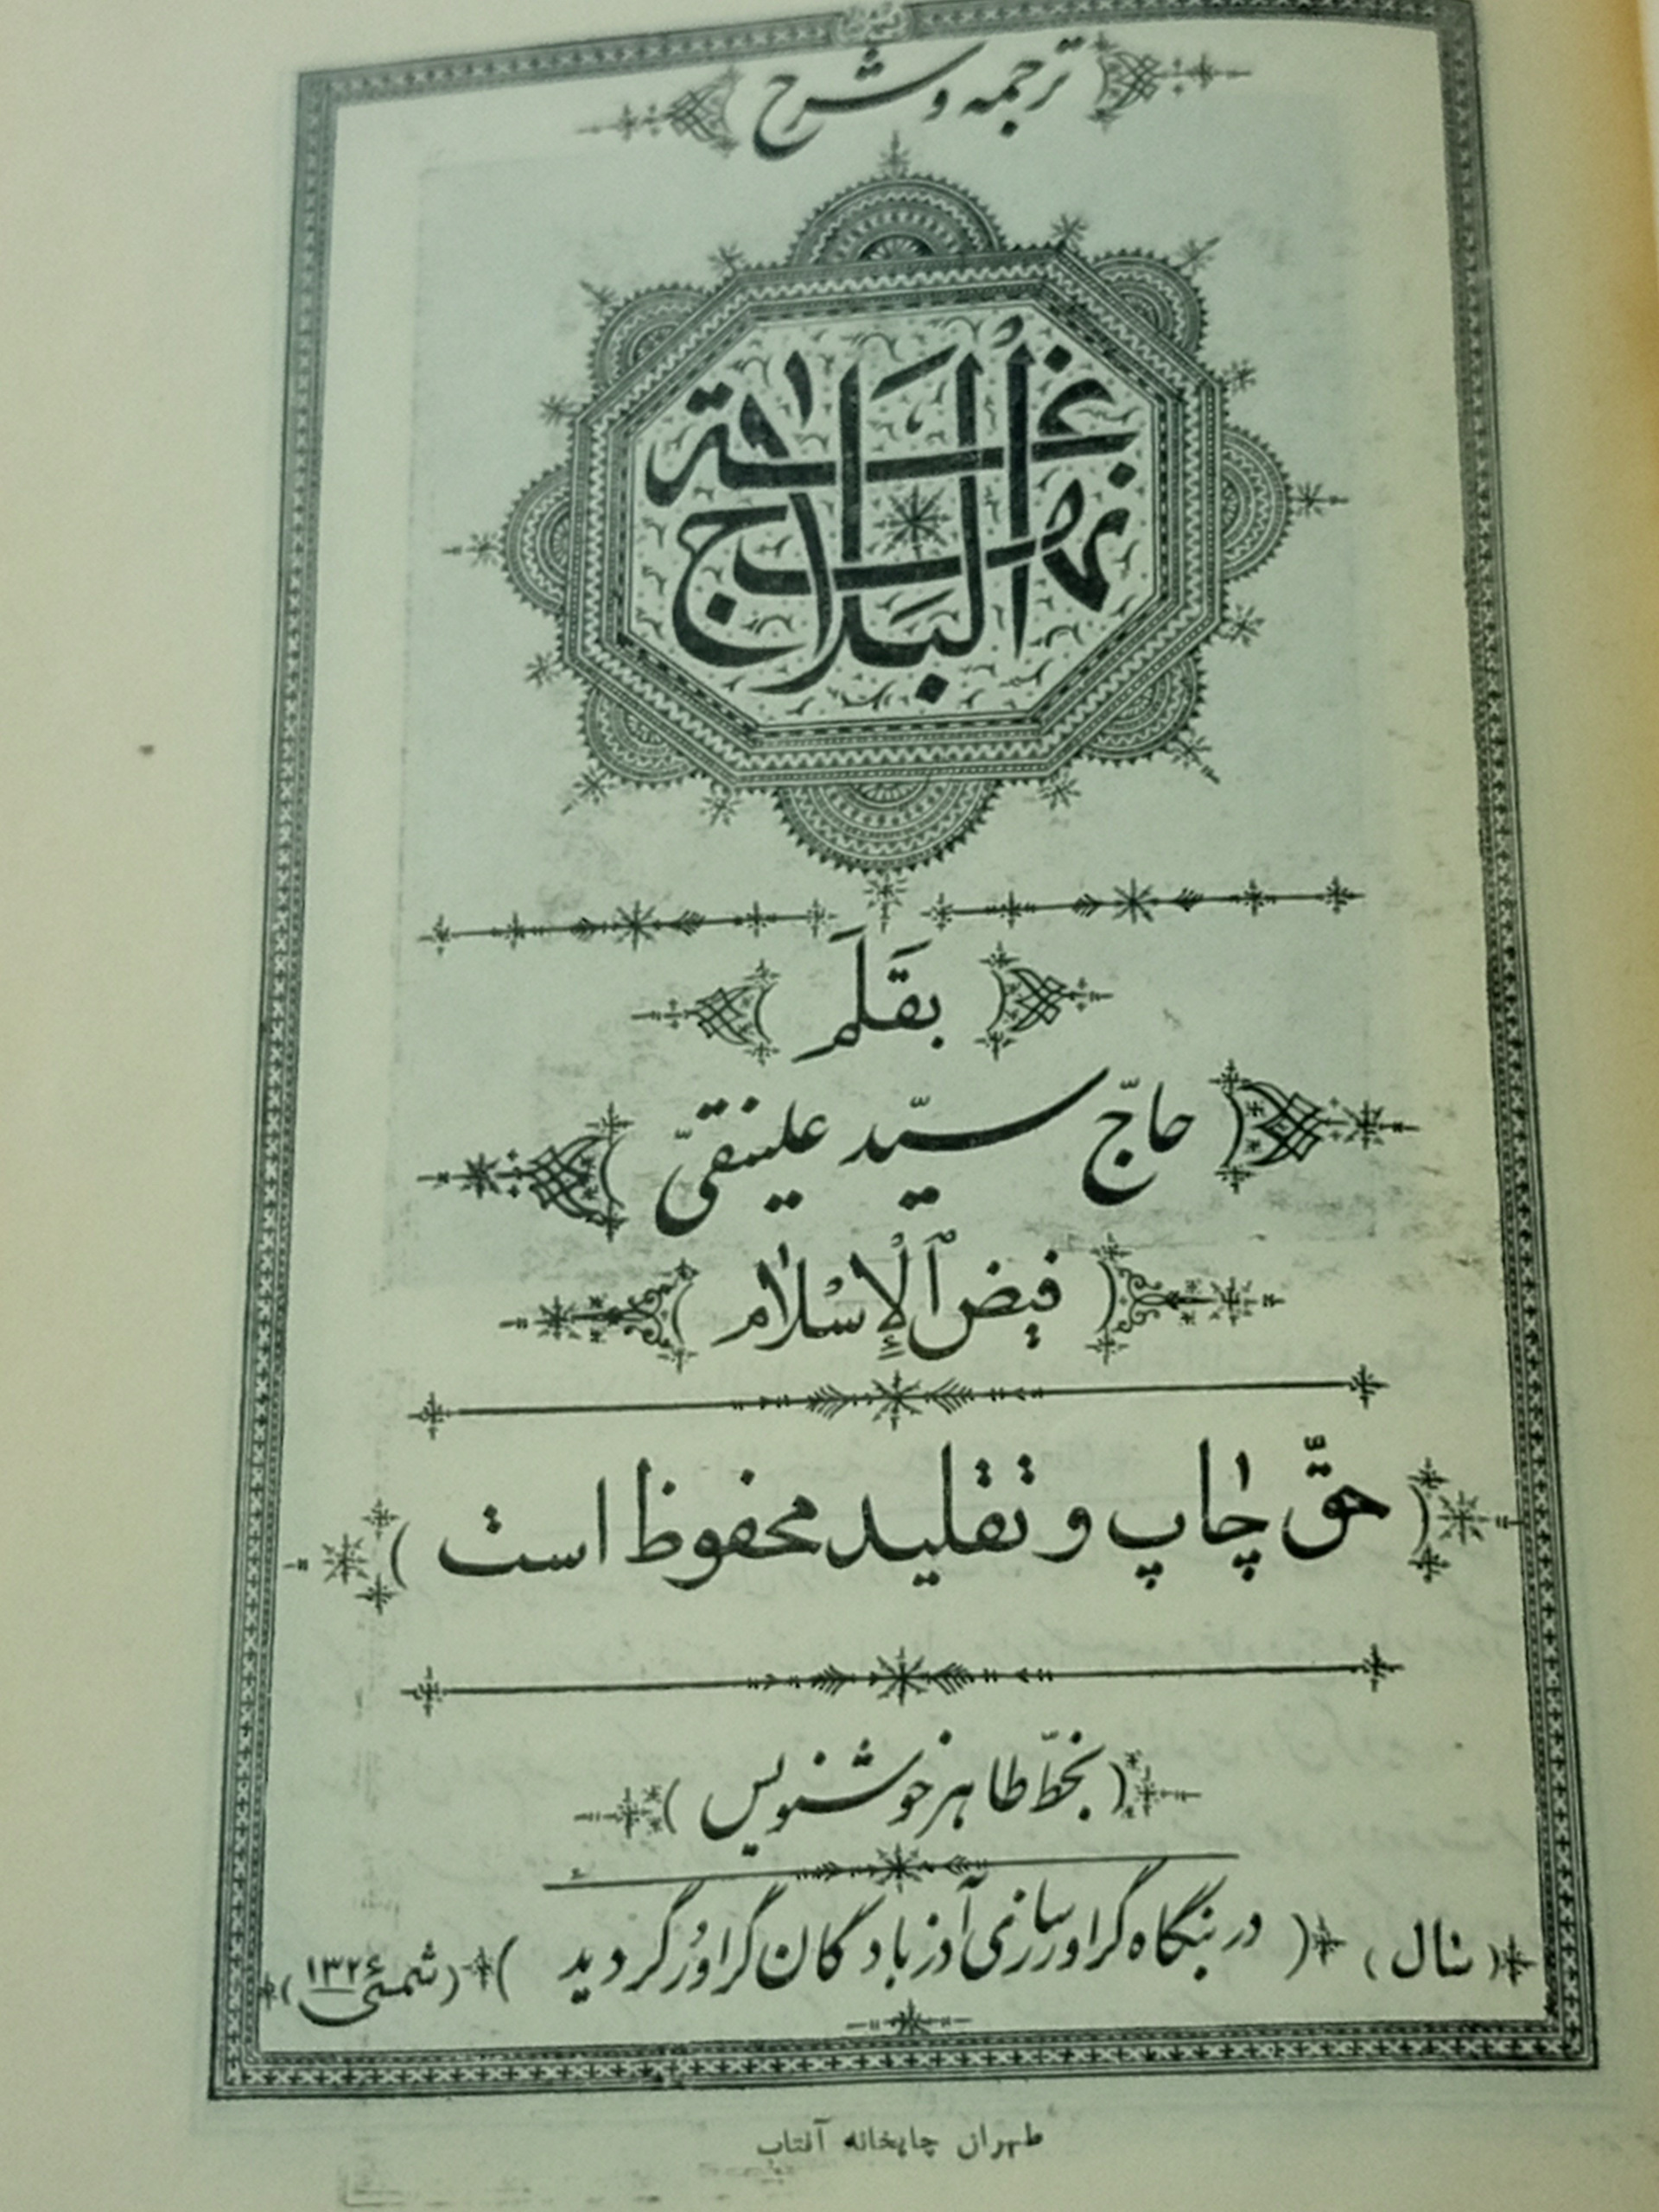 ترجمه و شرح
نهج البلاغة
نهج البلاغة
بقلم
حاجّ سیّد علینقیّ
فیض ٱلْإسْلام
حقّ چاپ و تقلید محفوظ است
(بخطّ طاهر خوشنویس)
(سال) (در بنگاه گراورسازی آذربادگان گراور گردید) (شمسی ۱۳۲۶)
طهران چاپخانه آفتاب